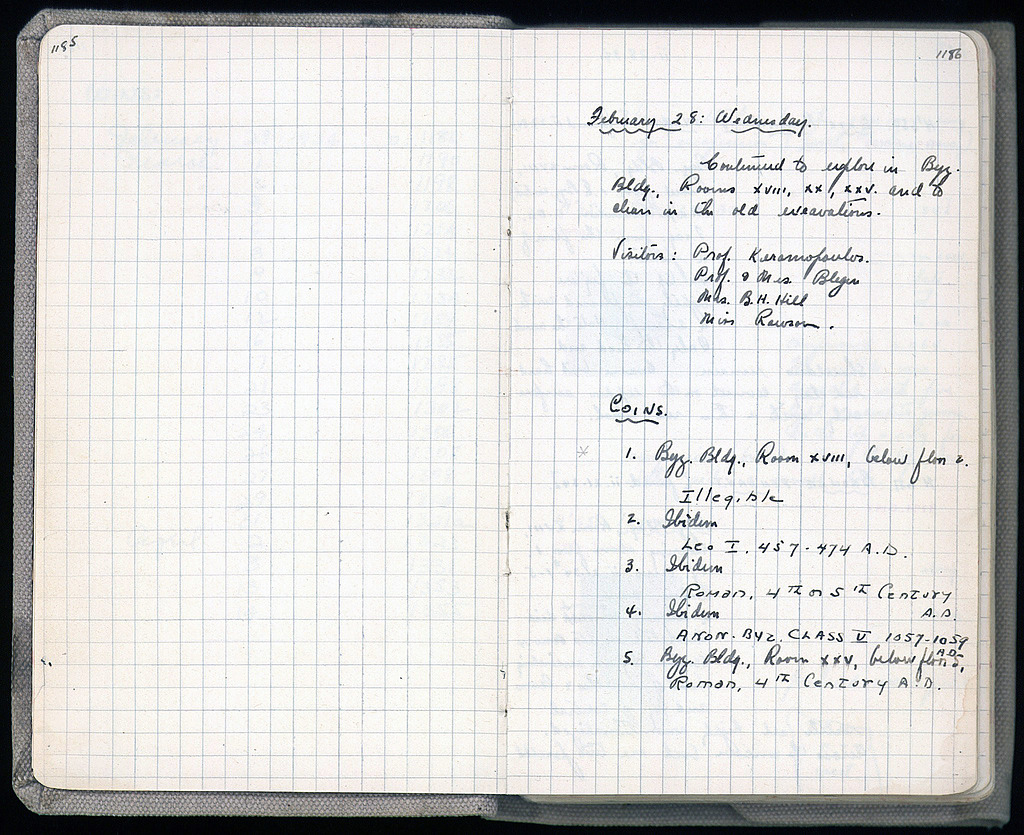 1185
1186
February 28: Wednesday.
Continued to explore in Byz.
Bldg., Rooms XVIII, XX, XXV. and to
clean in the old excavations.
Visitors: Prof. Keramopoulos.
Prof. & Mrs. Blegen
Mrs. B.H. Hill
Miss Rawson.
COINS.
* 1. Byz. Bldg., Room XVIII, below floor 2.
Illegible
2. Ibidem
Leo I. 457-474 A.D.
3. Ibidem
Roman, 4TH or 5TH Century
A.D.
4. Ibidem
ANON. BYZ. CLASS V 1057-1059
A.D.
5. Byz. Bldg., Room XXV, below floor 2,
Roman, 4TH Century A.D.